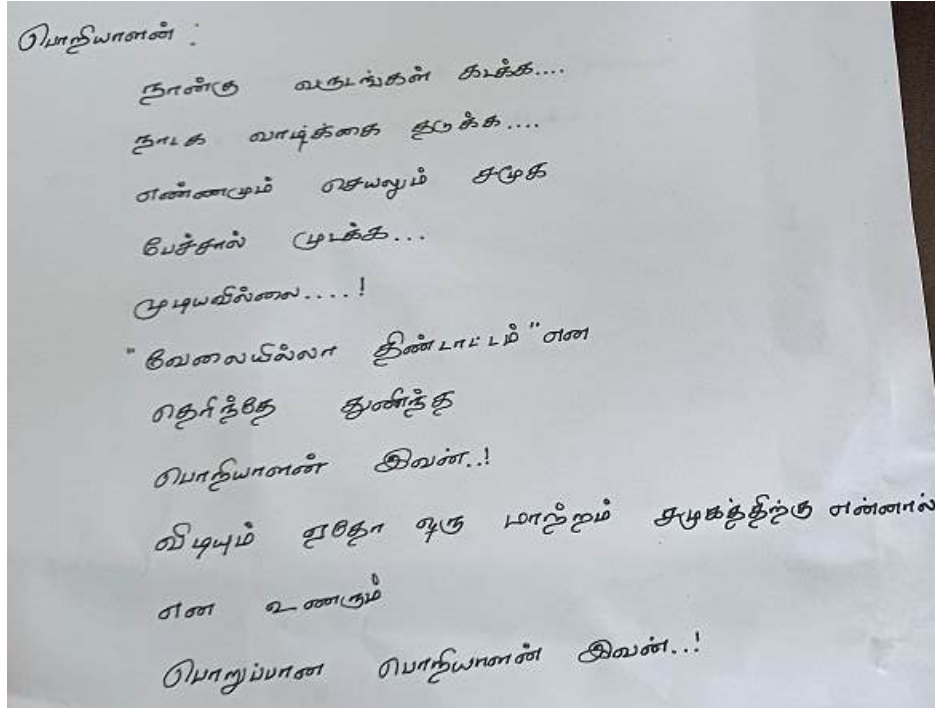 பொறியாளன் :
நான்கு வருடங்கள் கடக்க....
நாடக வாழ்க்கை தடுக்க....
எண்ணமும் செயலும் சமூக
பேச்சால் முடக்க...
முடியவில்லை....!
"வேலையில்லா திண்டாட்டம்" என
தெரிந்தே துணிந்த
பொறியாளன் இவன்..!
விடியும் ஏதோ ஒரு மாற்றம் சமுகத்திற்கு என்னால்
என உணரும்
பொறுப்பான பொறியாளன் இவன்..!